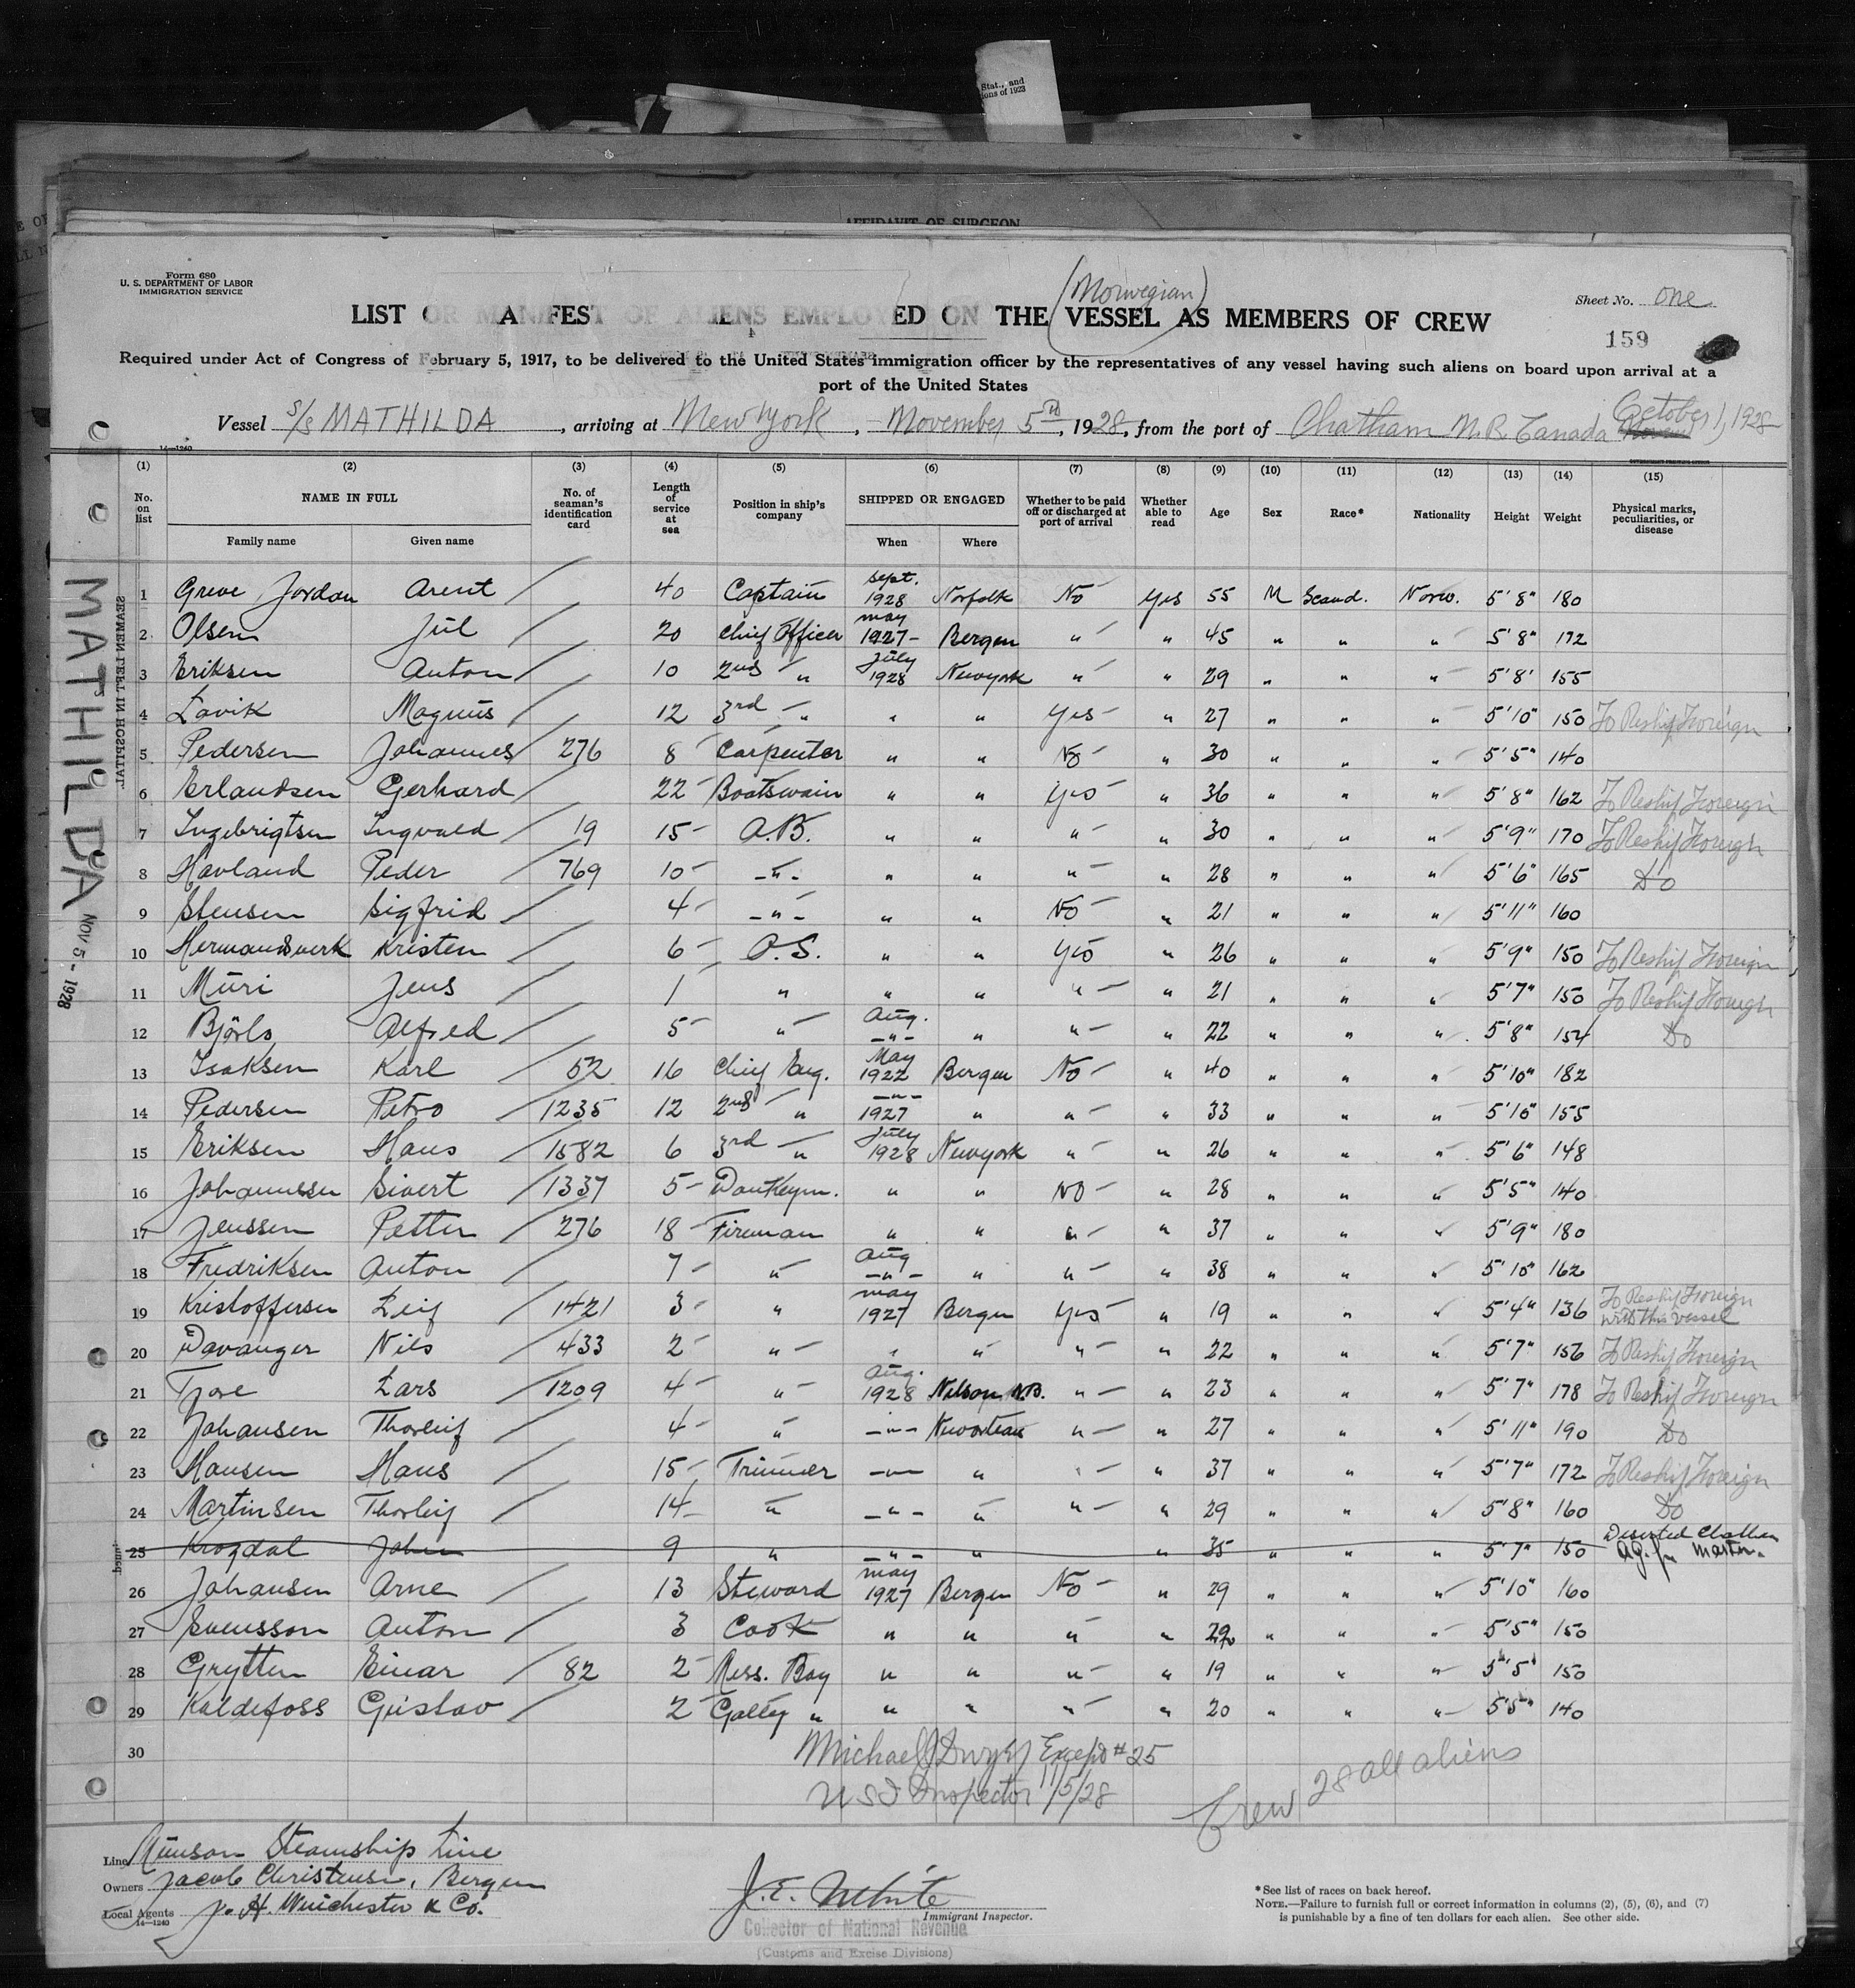 Stat., and
ions of 1923
AFFIDAVIT OF SURGEON
Form 680
U. S. DEPARTMENT OF LABOR
IMMIGRATION SERVICE
(Norwegian)
Sheet No. One
LIST OR MANIFEST OF ALIENS EMPLOYED ON THE VESSEL AS MEMBERS OF CREW
159
Required under Act of Congress of February 5, 1917, to be delivered to the United States immigration officer by the representatives of any vessel having such aliens on board upon arrival at a
port of the United States
Vessel S/S MATHILDA, arriving at New York, November 5th, 1928, from the port of Chatham N.B. Canada October 1, 1928
14—1240
(1) (2) (3) (4) (5) (6) (7) (8) (9) (10) (11) (12) (13) (14) (15)
No. on list NAME IN FULL No. of seaman's identification card Length of service at sea Position in ship's company SHIPPED OR ENGAGED Whether to be paid off or discharged at port of arrival Whether able to read Age Sex Race* Nationality Height Weight Physical marks, peculiarities, or disease
Family name Given name When Where
1 Greve Jordan Arent 40 Captain Sept. 1928 Norfolk No Yes 55 M Scand. Norw. 5'8" 180
2 Olsen Jul 20 Chief Officer May 1927 - Bergen " " 45 " " " 5'8" 172
3 Eriksen Anton 10 2nd " July 1928 Newyork " " 29 " " " 5'8' 155
4 Lavik Magnus 12 3rd " " " Yes " 27 " " " 5'10" 150 To Reship Foreign
5 Pedersen Johannes 276 8 Carpenter " " No " 30 " " " 5'5" 140
6 Erlandsen Gerhard 22 Boatswain " " Yes " 36 " " " 5'8" 162 To Reship Foreign
7 Ingebrigtsen Ingvald 19 15 A.B. " " " " 30 " " " 5'9" 170 To Reship Foreign
8 Havland Peder 769 10 -"- " " " " 28 " " " 5'6" 165 Do
9 Stensen Sigfrid 4 -"- " " No " 21 " " " 5'11" 160
10 Hermandsverk Kristen 6 O.S. " " Yes " 26 " " " 5'9" 150 To Reship Foreign
11 Muri Jens 1 " " " " " 21 " " " 5'7" 150 To Reship Foreign
12 Alfred 5 " Aug. -"- " " " 22 " " " 5'8" 154 Do
13 Isaksen Karl 52 16 Chief Eng. May 1922 Bergen No " 40 " " " 5'10" 182
14 Pedersen Petro 1235 12 2nd " -"- 1927 " " " 33 " " " 5'10" 155
15 Eriksen Hans 1582 6 3rd " July 1928 Newyork " " 26 " " " 5'6" 148
16 Johannesen Sivert 1337 5 Donkeym. " " No " 28 " " " 5'5" 140
17 Jenssen Petter 276 18 Fireman " " " " 37 " " " 5'9" 180
18 Fredriksen Anton 7 " Aug -"- " " " 38 " " " 5'10" 162
19 Kristoffersen Leif 1421 3 " May 1927 Bergen Yes " 19 " " " 5'4" 136 To Reship Foreign with this vessel
20 Davanger Nils 433 2 " " " " " 22 " " " 5'7" 156 To Reship Foreign
21 Tjore Lars 1209 4 " Aug. 1928 Nelson N.B. " " 23 " " " 5'7" 178 To Reship Foreign
22 Johansen Thorleif 4 " -"- " " 27 " " " 5'11" 190 Do
23 Hansen Hans 15 Trimmer -"- " " " 37 " " " 5'7" 172 To Reship Foreign
24 Martinsen Thorleif 14 " -"- " " " 29 " " " 5'8" 160 Do
25 Krogdal John 9 " -"- " " 35 " " " 5'7" 150 Deserted Chatham
Master.
26 Johansen Arne 13 Steward May 1927 Bergen No " 29 " " " 5'10" 160
27 Svensson Anton 3 Cook " " " " 29 " " " 5'5" 150
28 Grytten Einar 82 2 Mess. Boy " " " " 19 " " " 5'5" 150
29 Kaldefoss Gustav 2 Galley " " " " " 20 " " " 5'5" 140
30
Michael J Dwyer Except #25
U S I Inspector 11/5/28
Crew 28 all aliens
SEAMEN LEFT IN HOSPITAL
MATHILDA
NOV 5 - 1928
Line Munson Steamship Line
Owners Jacob Christensen, Bergen
Local Agents J. H. Winchester & Co.
14—1240
J. E. White
Immigrant Inspector.
Collector of National Revenue
(Customs and Excise Divisions)
*See list of races on back hereof.
NOTE.—Failure to furnish full or correct information in columns (2), (5), (6), and (7)
is punishable by a fine of ten dollars for each alien. See other side.